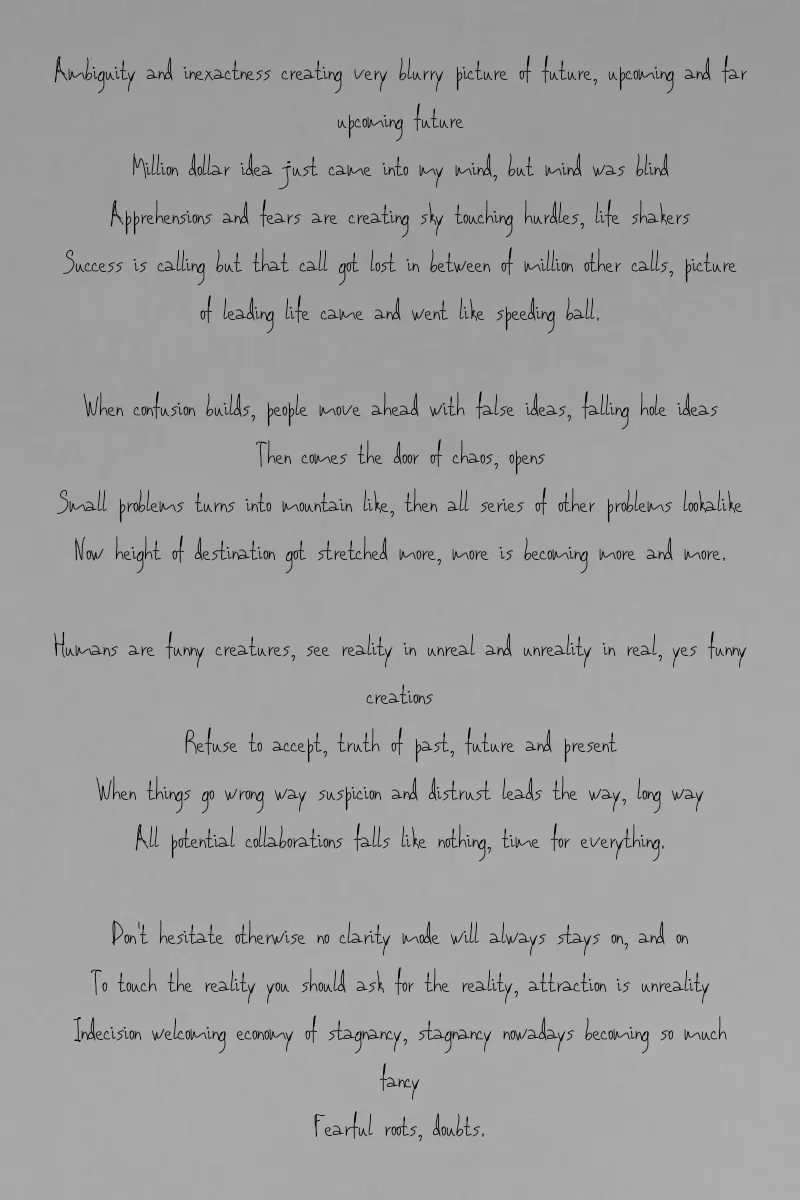 Ambiguity and inexactness creating very blurry picture of future, upcoming and far
upcoming future
Million dollar idea just came into my mind, but mind was blind
Apprehensions and fears are creating sky touching hurdles, life shakers
Success is calling but that call got lost in between of million other calls, picture
of leading life came and went like speeding ball.
When confusion builds, people move ahead with false ideas, falling hole ideas
Then comes the door of chaos, opens
Small problems turns into mountain like, then all series of other problems lookalike
Now height of destination got stretched more, more is becoming more and more.
Humans are funny creatures, see reality in unreal and unreality in real, yes funny
creations
Refuse to accept, truth of past, future and present
When things go wrong way suspicion and distrust leads the way, long way
All potential collaborations falls like nothing, time for everything.
Don't hesitate otherwise no clarity mode will always stays on, and on
To touch the reality you should ask for the reality, attraction is unreality
Indecision welcoming economy of stagnancy, stagnancy nowadays becoming so much
fancy
Fearful roots, doubts.